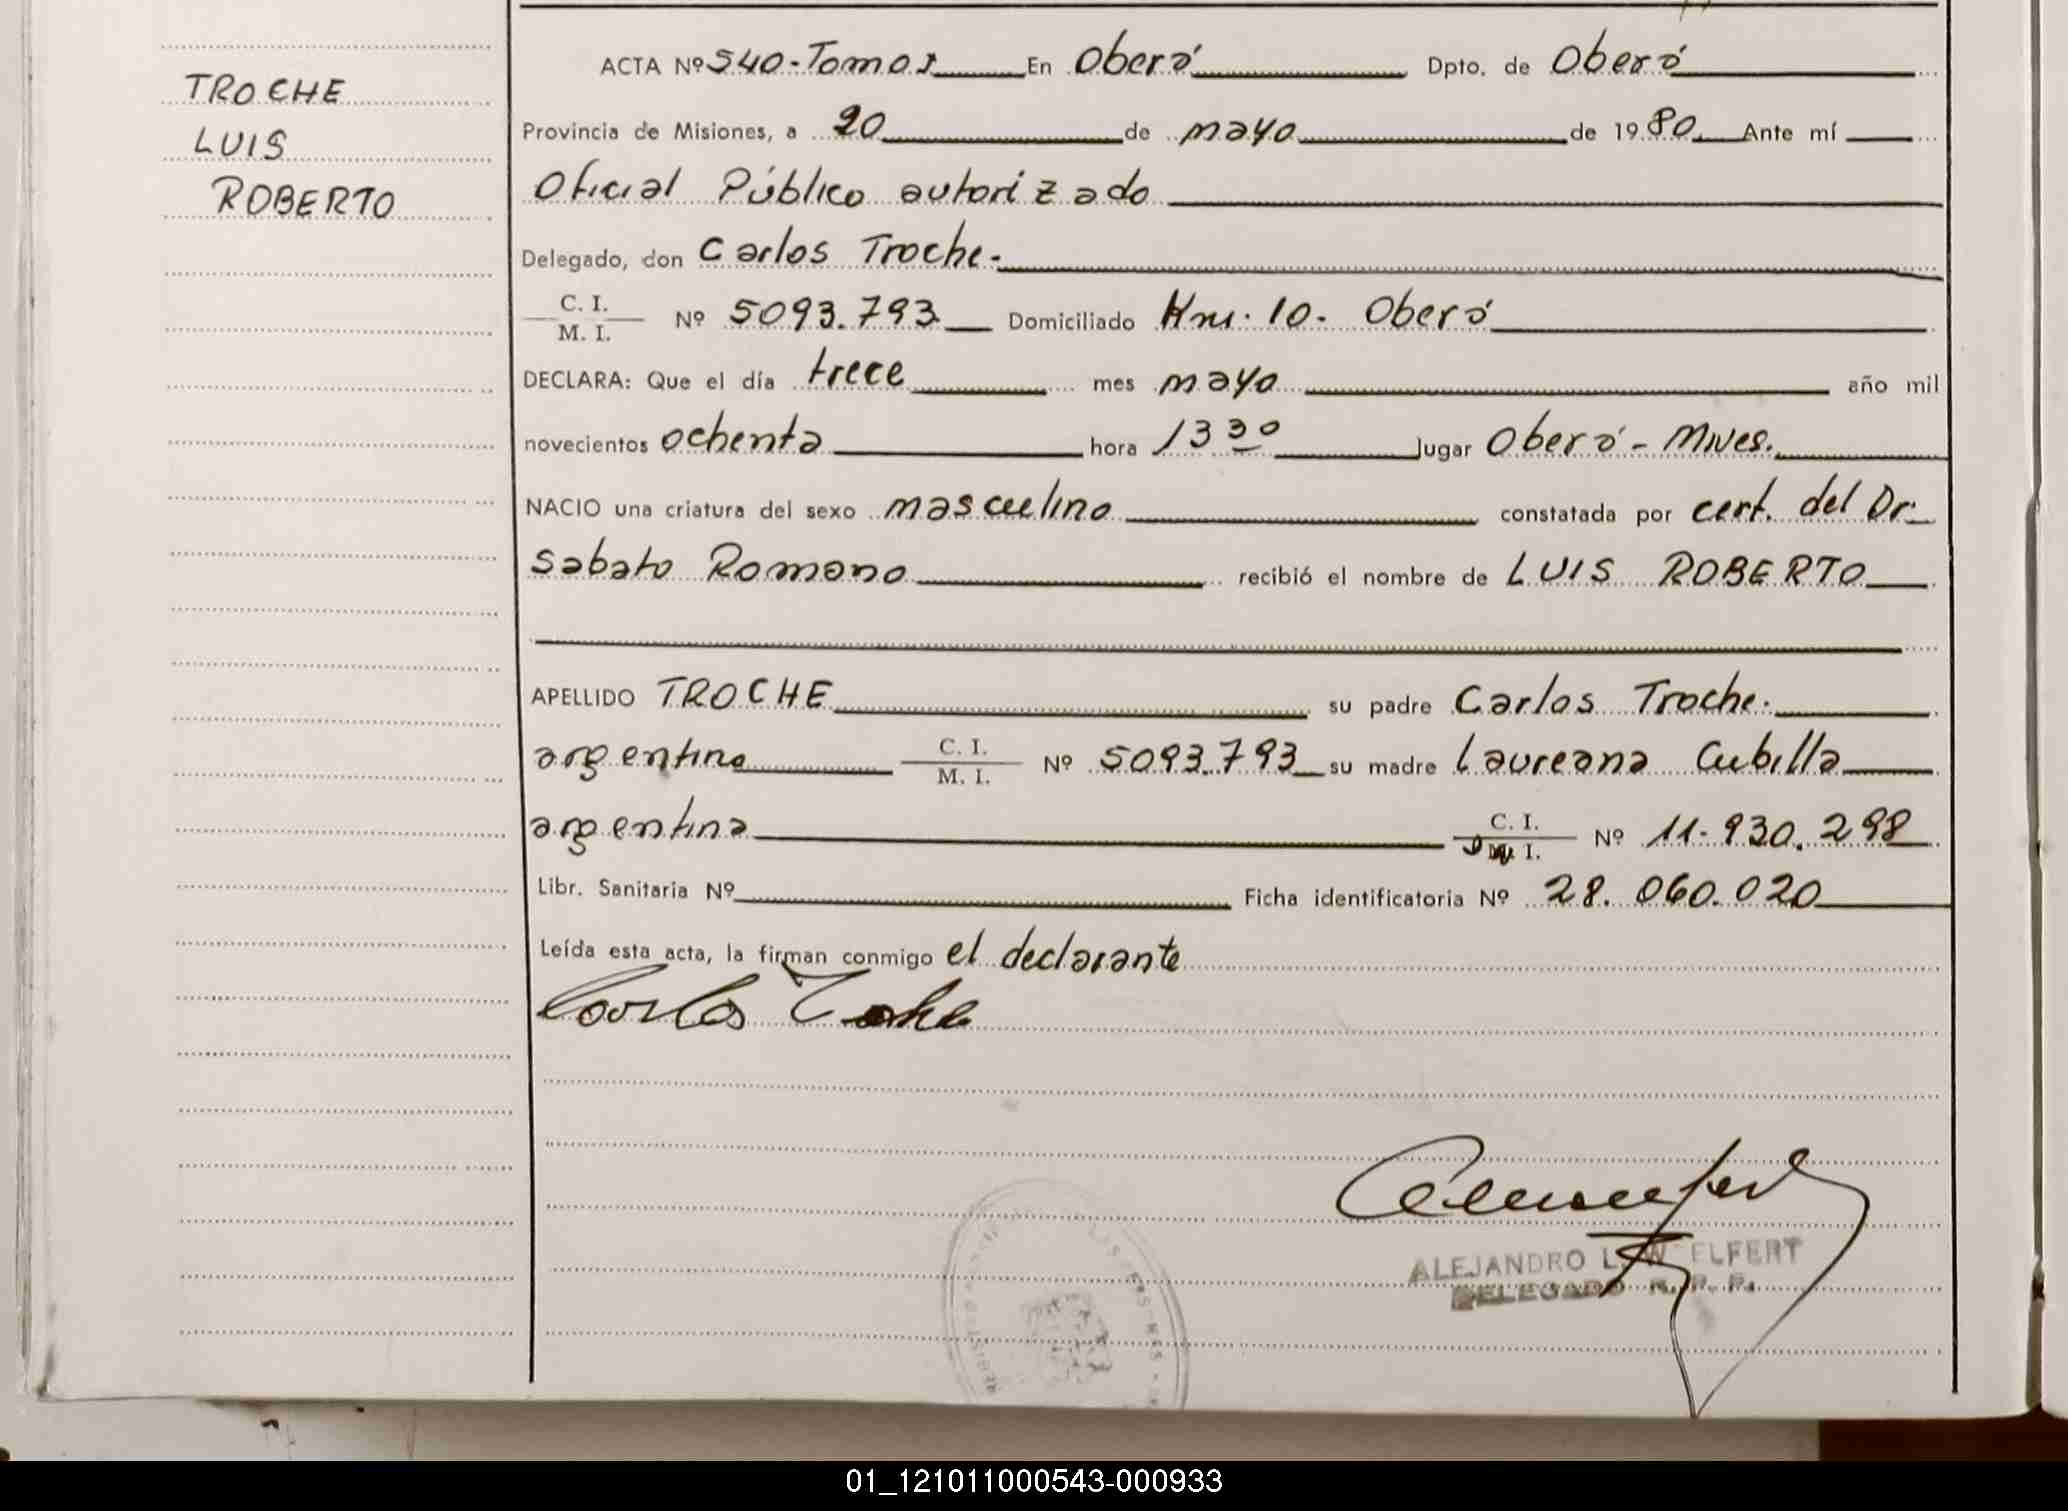 TROCHE
LUIS
ROBERTO
ACTA Nº 540-Tomo I En Oberá Dpto. de Oberá
Provincia de Misiones, a 20 de mayo de 1980. Ante mí
Oficial Público autorizado
Delegado, don Carlos Troche.
C. I.
M. I. Nº 5093.793 Domiciliado Km. 10. Oberá
DECLARA: Que el día trece mes mayo año mil
novecientos ochenta hora 13 30 lugar Oberá - Mnes.
NACIO una criatura del sexo masculino constatada por cert. del Dr.
Sabato Romano recibió el nombre de LUIS ROBERTO
APELLIDO TROCHE su padre Carlos Troche.
argentino C. I.
M. I. Nº 5093.793 su madre Laureana Cubilla
argentina C. I.
M. I. Nº 11.930.298
Libr. Sanitaria Nº Ficha identificatoria Nº 28.060.020
Leída esta acta, la firman conmigo el declarante
Carlos Troche
ALEJANDRO L. W ELFERT
DELEGADO R. P. P.
01_121011000543-000933